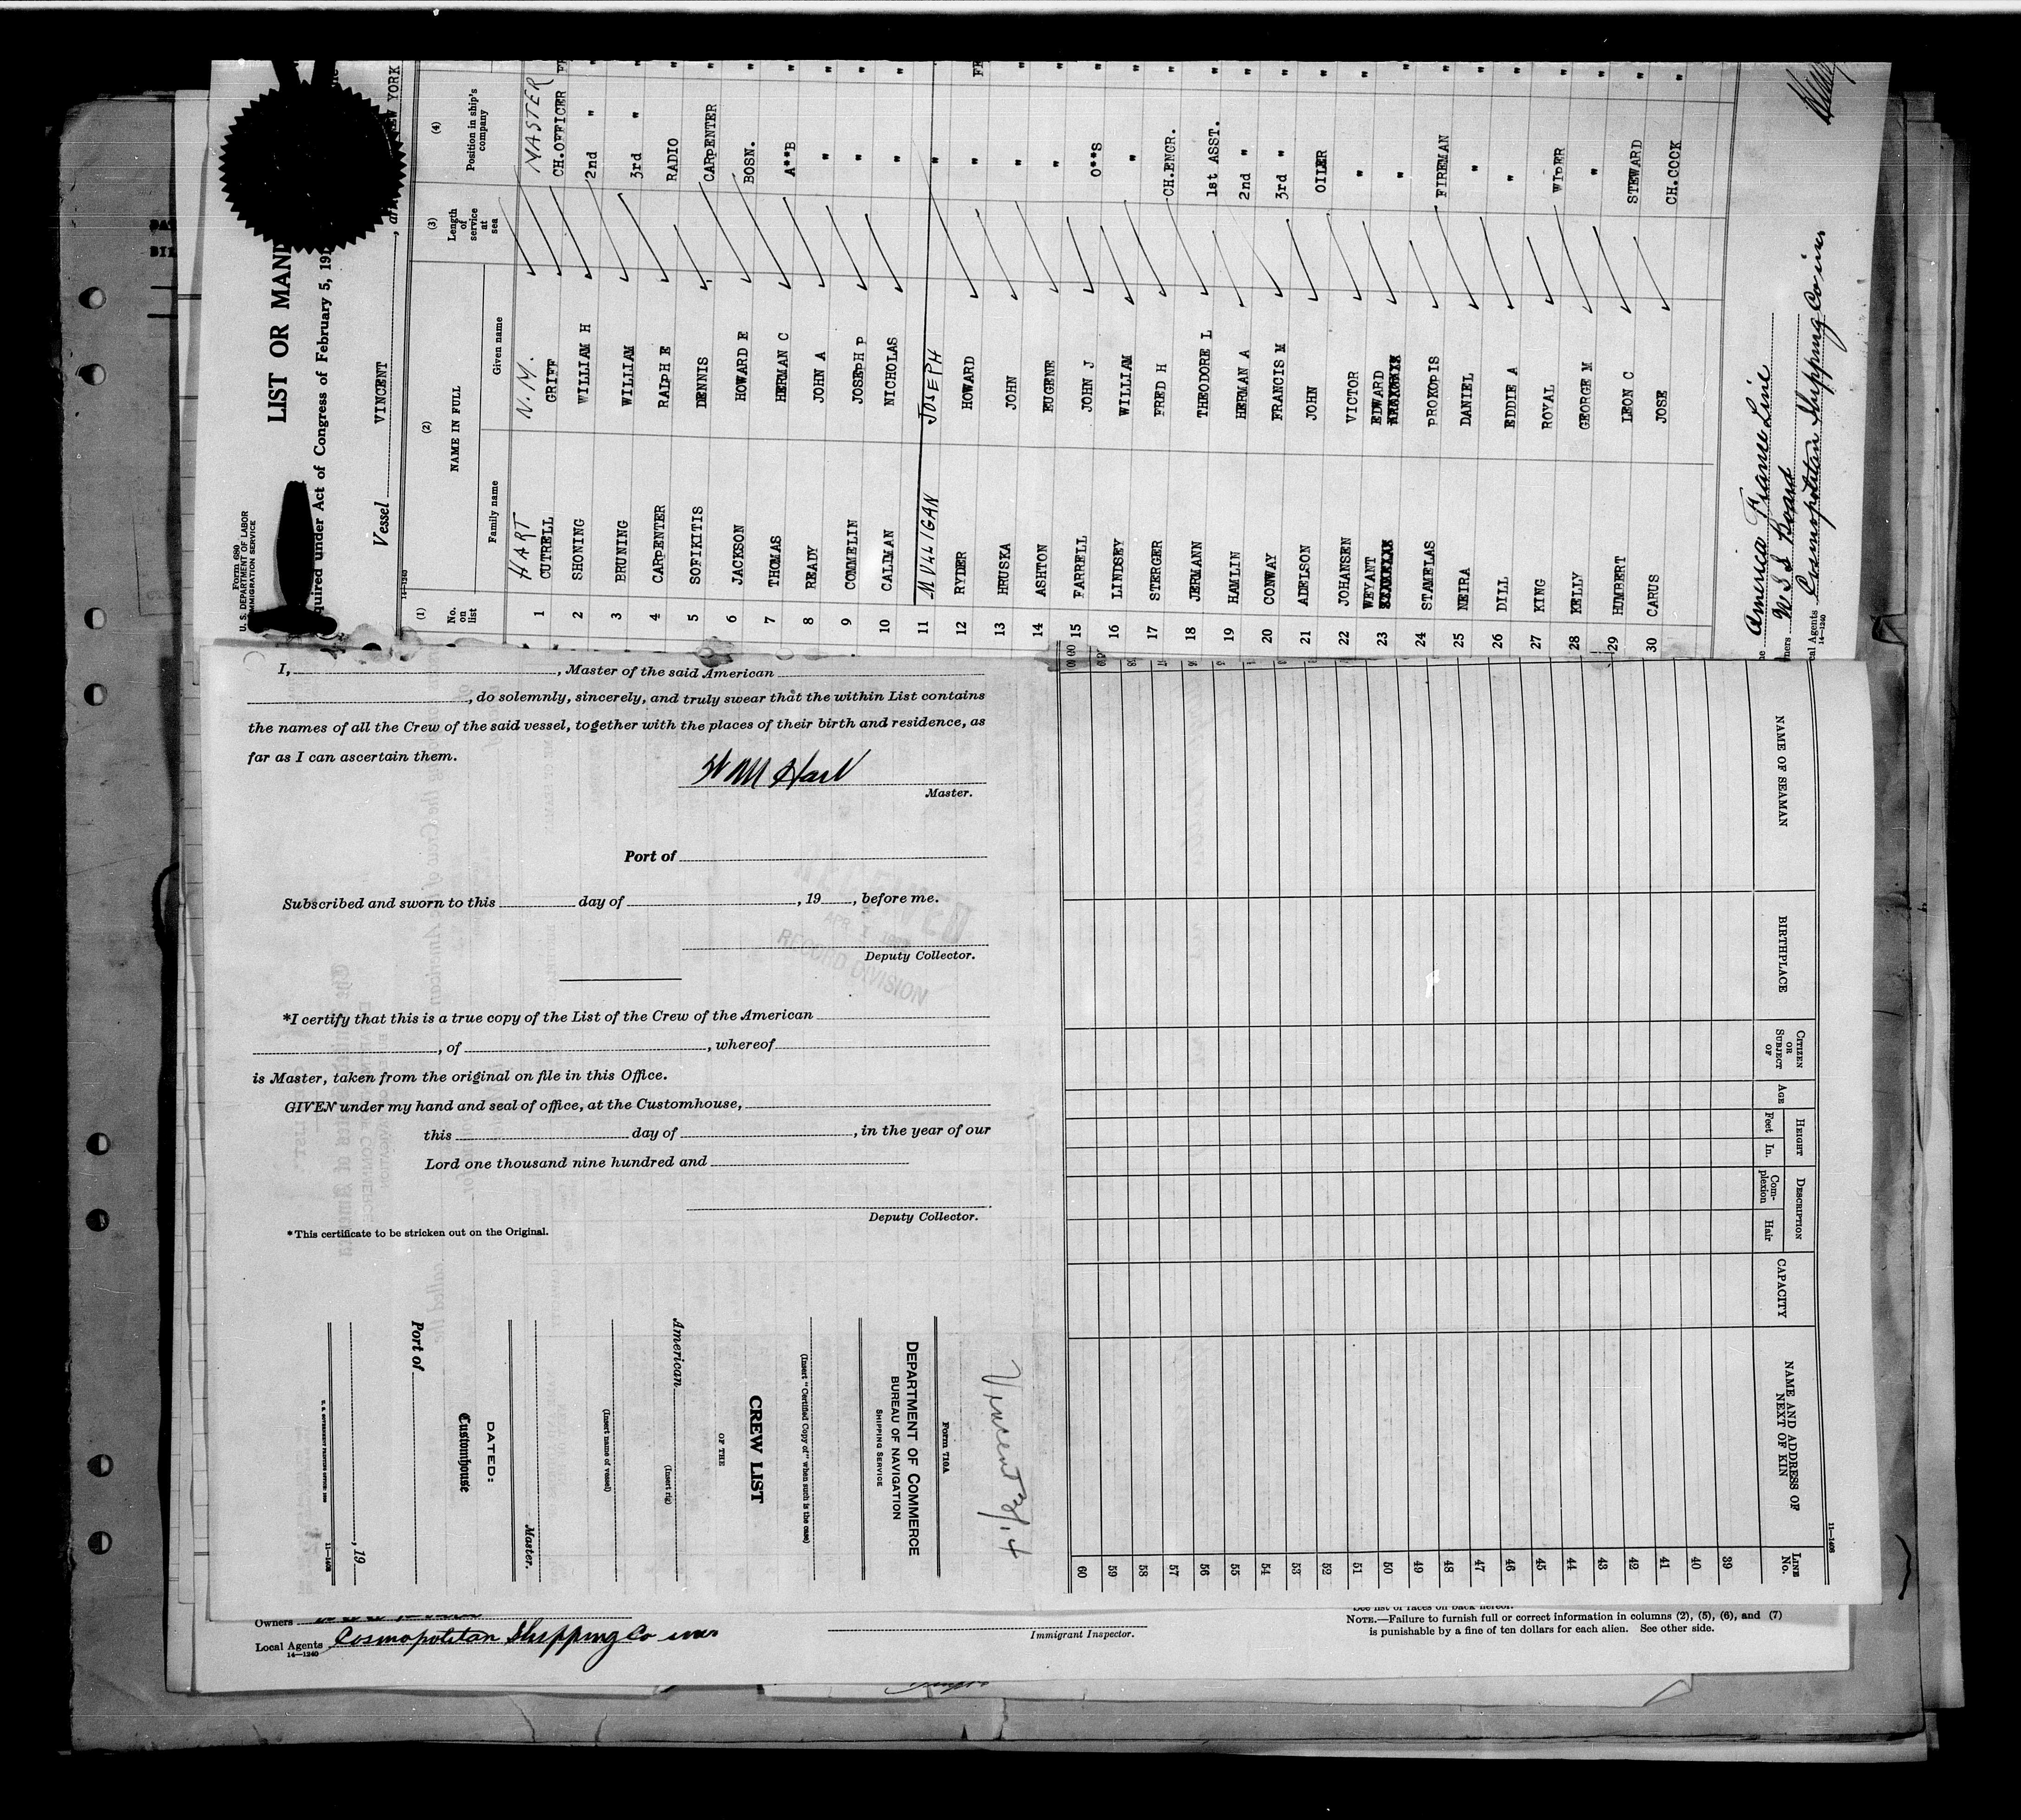 Form 680
U. S. DEPARTMENT OF LABOR
IMMIGRATION SERVICE
LIST OR
quired under Act of Congress of February 5, 191
Vessel VINCENT
NEW YORK
14—1240
(1) (2) (3) (4)
No. on list
NAME IN FULL
Family name Given name
Length of service at sea
Position in ship's company
HART N.M. MASTER
1 CUTRELL GRIFF CH.OFFICER
2 SHONING WILLIAM H 2nd "
3 BRUNING WILLIAM 3rd "
4 CARPENTER RALPH E RADIO
5 SOFIKITIS DENNIS CARPENTER
6 JACKSON HOWARD E BOSN.
7 THOMAS HERMAN C A**B
8 READY JOHN A "
9 COMMELIN JOSEPH P "
10 CALIMAN NICHOLAS "
11 MULLIGAN JOSEPH "
12 RYDER HOWARD "
13 HRUSKA JOHN "
14 ASHTON EUGENE "
15 FARRELL JOHN J O**S
16 LINDSEY WILLIAM "
17 STERGER FRED H CH.ENGR.
18 JERMANN THEODORE L 1st ASST.
19 HAMLIN HERMAN A 2nd "
20 CONWAY FRANCIS M 3rd "
21 ADELSON JOHN OILER
22 JOHANSEN VICTOR "
23 WEYANT EDWARD "
24 STAMELAS PROKOPIS FIREMAN
25 NEIRA DANIEL "
26 DILL EDDIE A "
27 KING ROYAL WIPER
28 KELLY GEORGE M "
29 HUMBERT LEON C STEWARD
30 CARUS JOSE CH.COOK
America France Line
ners U.S.S. Board
cal Agents Cosmopolitan Shipping Co inc
14—1240
I, , Master of the said American
, do solemnly, sincerely, and truly swear that the within List contains
the names of all the Crew of the said vessel, together with the places of their birth and residence, as
far as I can ascertain them.
N M Hart
Master.
Port of
Subscribed and sworn to this day of , 19 , before me.
RECEIVED
APR
RECORD DIVISION
Deputy Collector.
*I certify that this is a true copy of the List of the Crew of the American
, of , whereof
is Master, taken from the original on file in this Office.
GIVEN under my hand and seal of office, at the Customhouse,
this day of , in the year of our
Lord one thousand nine hundred and
Deputy Collector.
*This certificate to be stricken out on the Original.
Vincent 3/14
Form 710A
DEPARTMENT OF COMMERCE
BUREAU OF NAVIGATION
SHIPPING SERVICE
(Insert "Certified Copy of" when such is the case)
CREW LIST
OF THE
American
(Insert rig)
(Insert name of vessel)
Master.
DATED:
Customhouse
Port of
, 19
11—1408
11—1408
LINE No.
NAME OF SEAMAN
BIRTHPLACE
CITIZEN OR SUBJECT OF
AGE
HEIGHT
Feet In.
DESCRIPTION
Com-plexion Hair
CAPACITY
NAME AND ADDRESS OF NEXT OF KIN
39
40
41
42
43
44
45
46
47
48
49
50
51
52
53
54
55
56
57
58
59
60
Owners
Local Agents Cosmopolitan Shipping Co inc
14—1240
Immigrant Inspector.
See list of races on back hereof.
NOTE.—Failure to furnish full or correct information in columns (2), (5), (6), and (7)
is punishable by a fine of ten dollars for each alien. See other side.